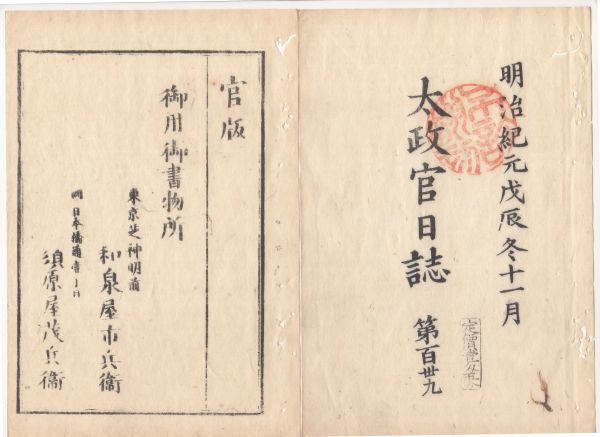 明治紀元戊辰冬十一月
太政官日誌
第百卅九
官版
御用御書物所
東京芝神明前
和泉屋市兵衞
同日本橋通壹丁目
須原屋茂兵衞